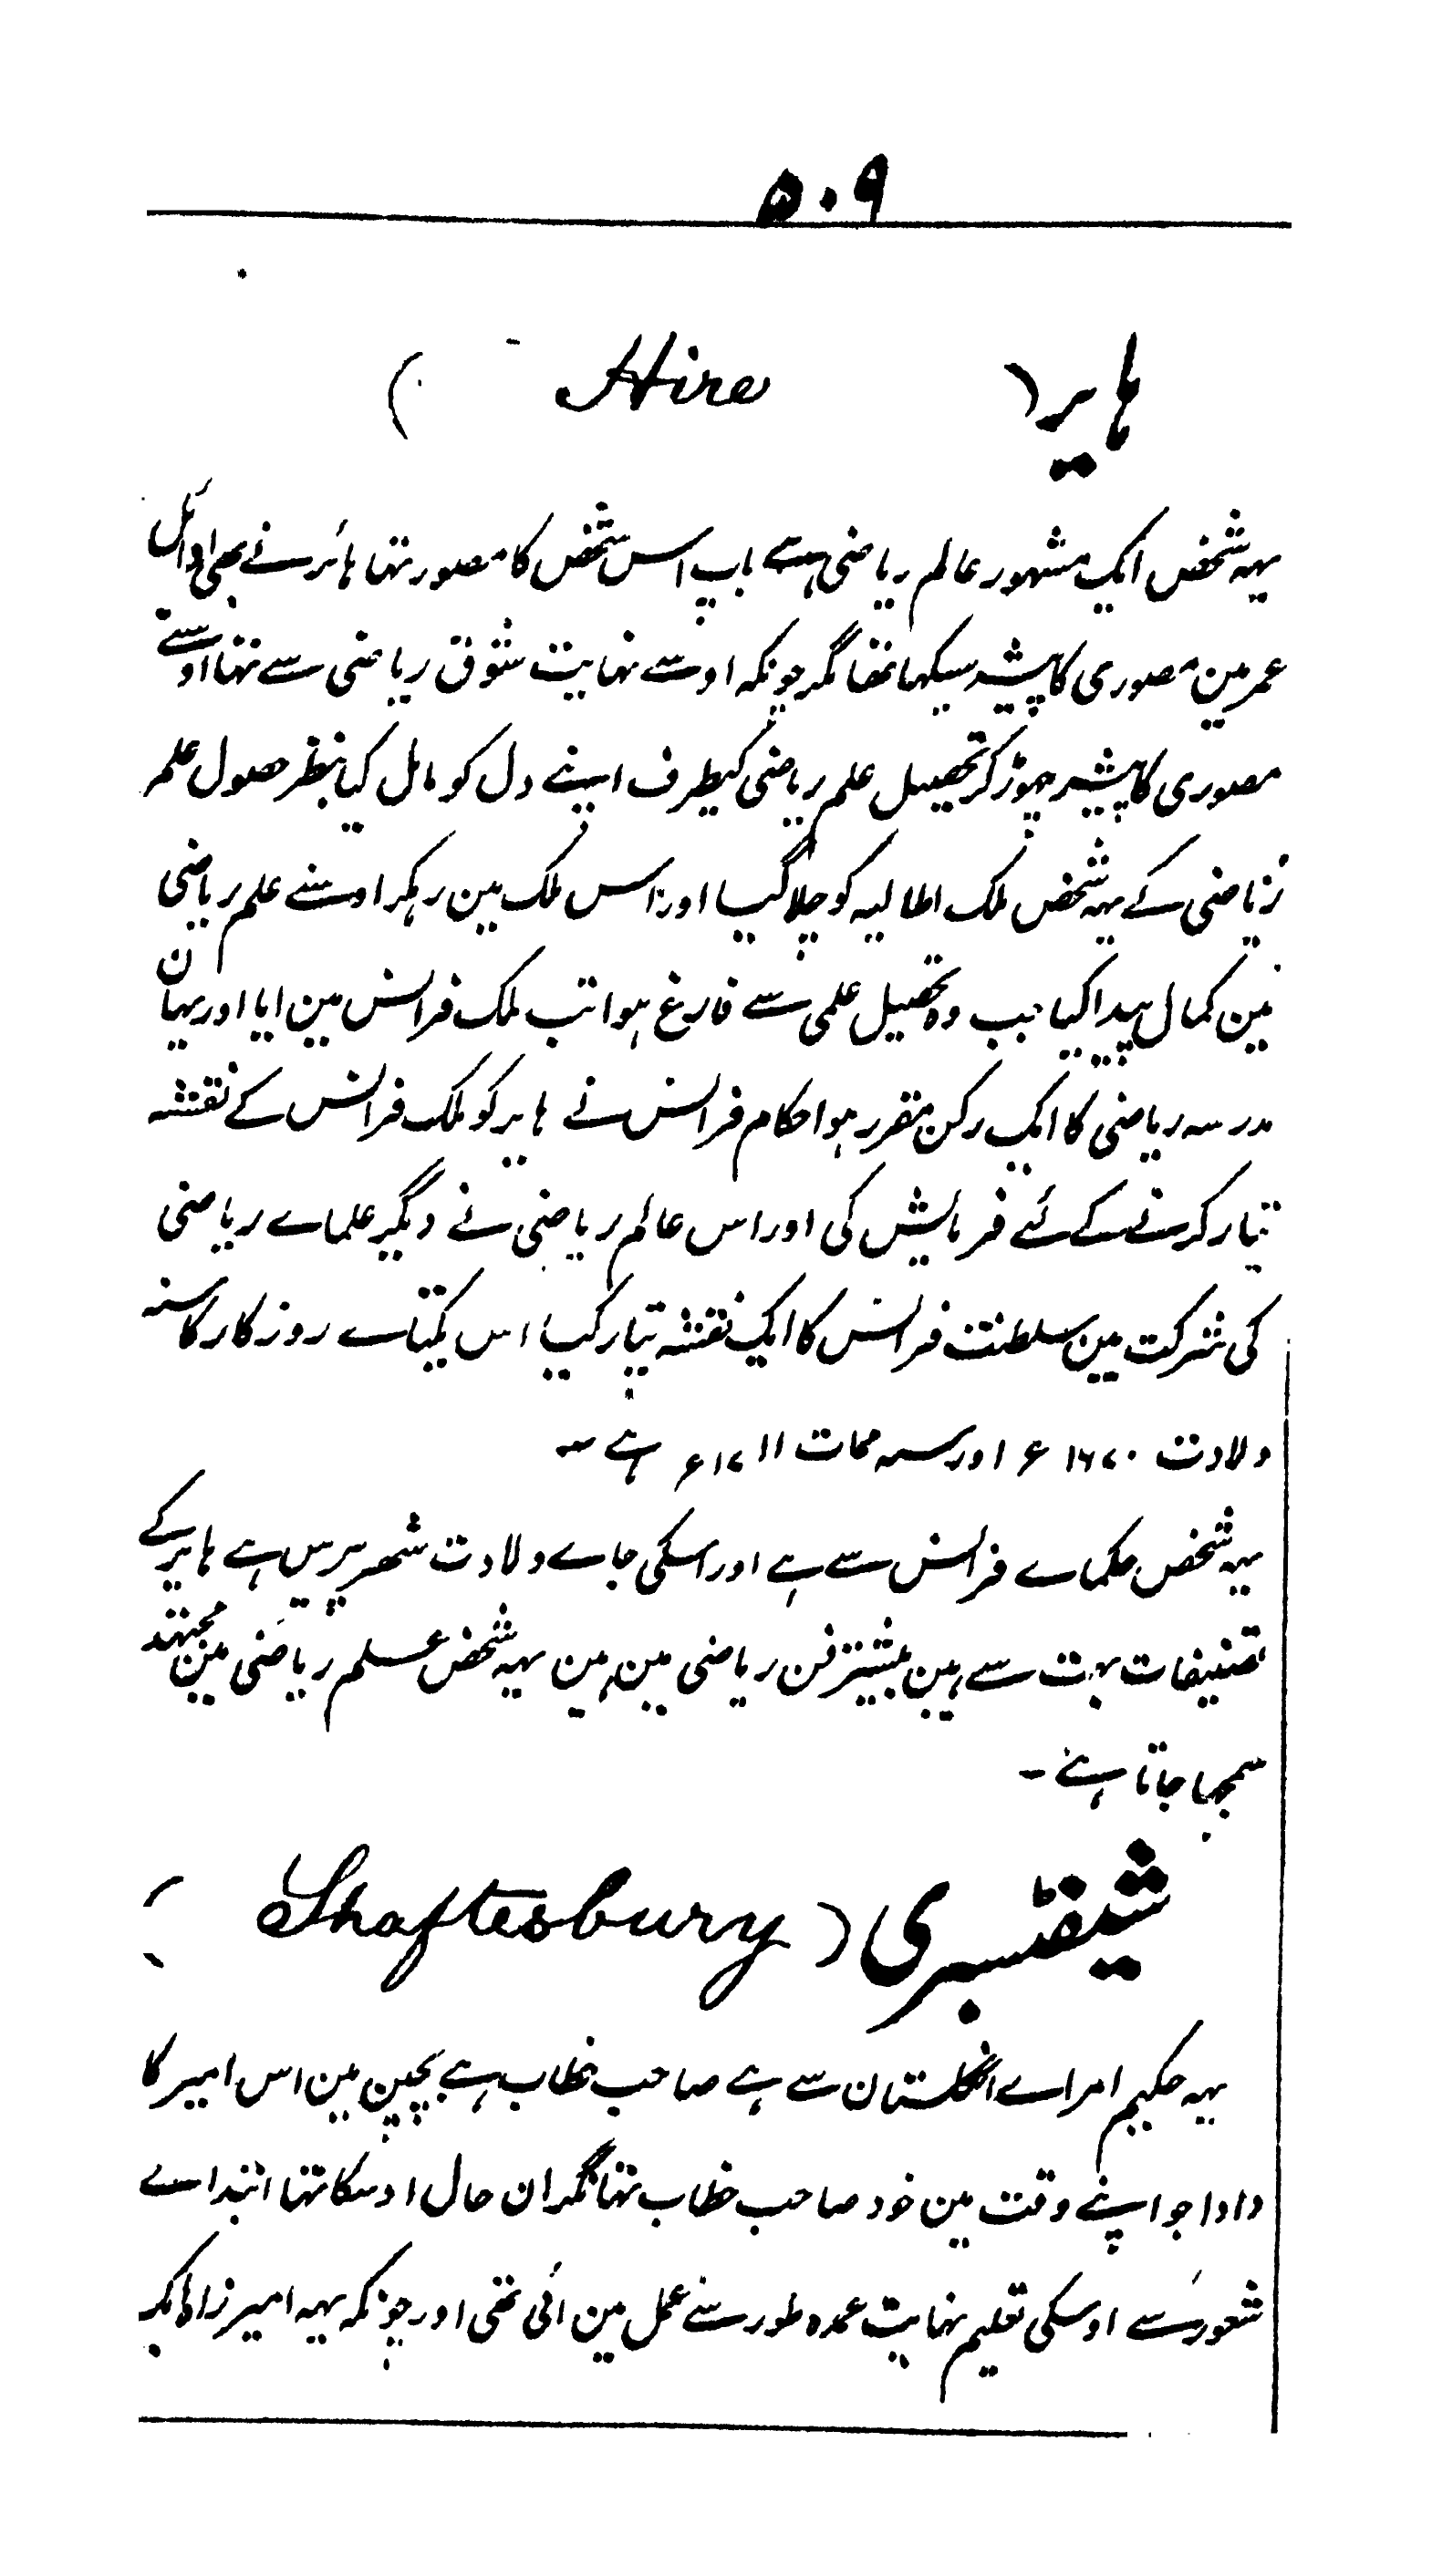 ۵۰۹
ہایر ( Hire )
یہہ شخص ایک مشہور عالم ریاضی ہے باپ اس شخص کا مصور تہا ہائر نے بھی اوائل
عمر مین مصوری کا پیشہ سیکہا تھا مگر چونکہ اوسے نہایت شوق ریاضی سے تہا اوسنے
مصوری کا پیشہ چہوڑ کر تحصیل علم ریاضی کیطرف اپنے دل کو مائل کیا بنظر حصول علم
ریاضی کے یہہ شخص ملک اطالیہ کو چلا گیا اور اس ملک مین رہکر اوسنے علم ریاضی
مین کمال پیدا کیا جب وہ تحصیل علمی سے فارغ ہوا تب ملک فرانس مین ایا اور یہان
مدرسہ ریاضی کا ایک رکن مقرر ہوا حکام فرانس نے ہایر کو ملک فرانس کے نقشہ
تیار کرنے کے لئے فرمایش کی اور اس عالم ریاضی نے دیگر علماے ریاضی
کی شرکت مین سلطنت فرانس کا ایک نقشہ تیار کیا اس یکتاے روزکار کا سنہ
ولادت ۱۶۷۰ ء اور سنہ ممات ۱۷۱۱ ء ہے ۔
یہہ شخص حکماے فرانس سے ہے اور اسکی جاے ولادت شھر پیرس ہے ہایر کے
تصنیفات بہت سے ہین بیشتر فن ریاضی مین ہین یہہ شخص علم ریاضی مین مجتہد
سمجہا جاتا ہے ۔
شیفٹسبری ( Shaftesbury )
یہہ حکیم امراے انگلستان سے ہے صاحب خطاب ہے بچپن مین اس امیر کا
دادا جو اپنے وقت مین خود صاحب خطاب تہا نگران حال اوسکا تہا ابتداے
شعور سے اوسکی تعلیم نہایت عمدہ طور سے عمل مین ائی تھی اور چونکہ یہہ امیر زادہ ایک